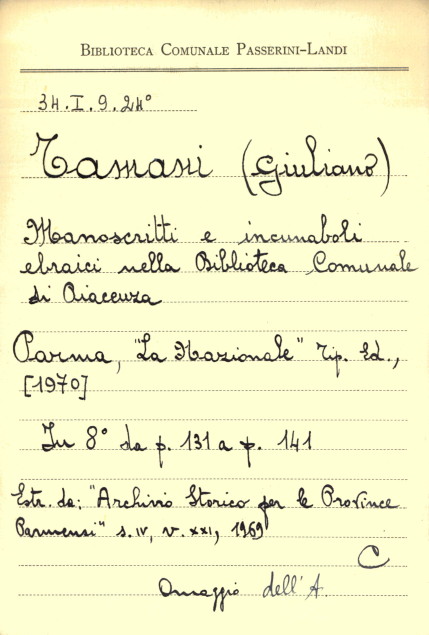 BIBLIOTECA COMUNALE PASSERINI-LANDI
34.I.9.24°
Tamani (Giuliano)
Manoscritti e incunaboli
ebraici nella Biblioteca Comunale
di Piacenza
Parma, "La Nazionale" Tip. Ed.,
[1970]
In 8° da p. 131 a p. 141
Estr. da: "Archivio Storico per le Province
Parmensi" s. IV, v. XXI, 1969
C
Omaggio dell'A.